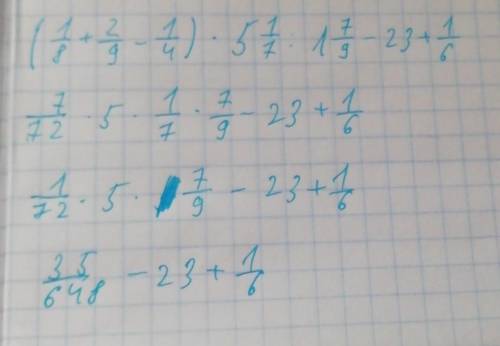 (1/8 + 2/9 - 1/4) · 5 1/7 : 1 7/9 - 23 + 1/6
7/72 · 5 · 1/7 · 7/9 - 23 + 1/6
1/72 · 5 · 7/9 - 23 + 1/6
35/648 - 23 + 1/6